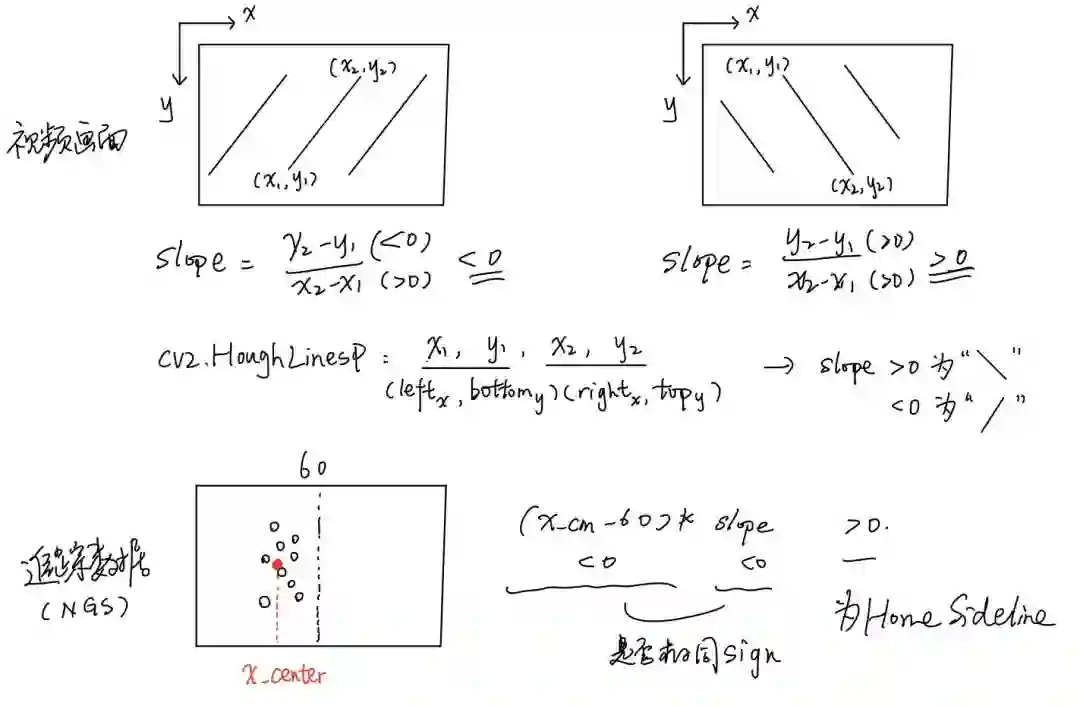 x
x
y
y
(x₂, y₂)
(x₁, y₁)
(x₁, y₁)
(x₂, y₂)
视频画面
slope = y₂-y₁ (<0) / x₂-x₁ (>0) < 0
slope = y₂-y₁ (>0) / x₂-x₁ (>0) > 0
cv2.HoughLinesP : x₁, y₁, x₂, y₂
(leftₓ, bottom_y)(rightₓ, top_y)
→ slope >0 为 "\"
<0 为 "/"
60
追踪数据
(NGS)
x_center
(x_cm - 60) * slope >0.
<0 <0
是否相同sign
为Home Sideline